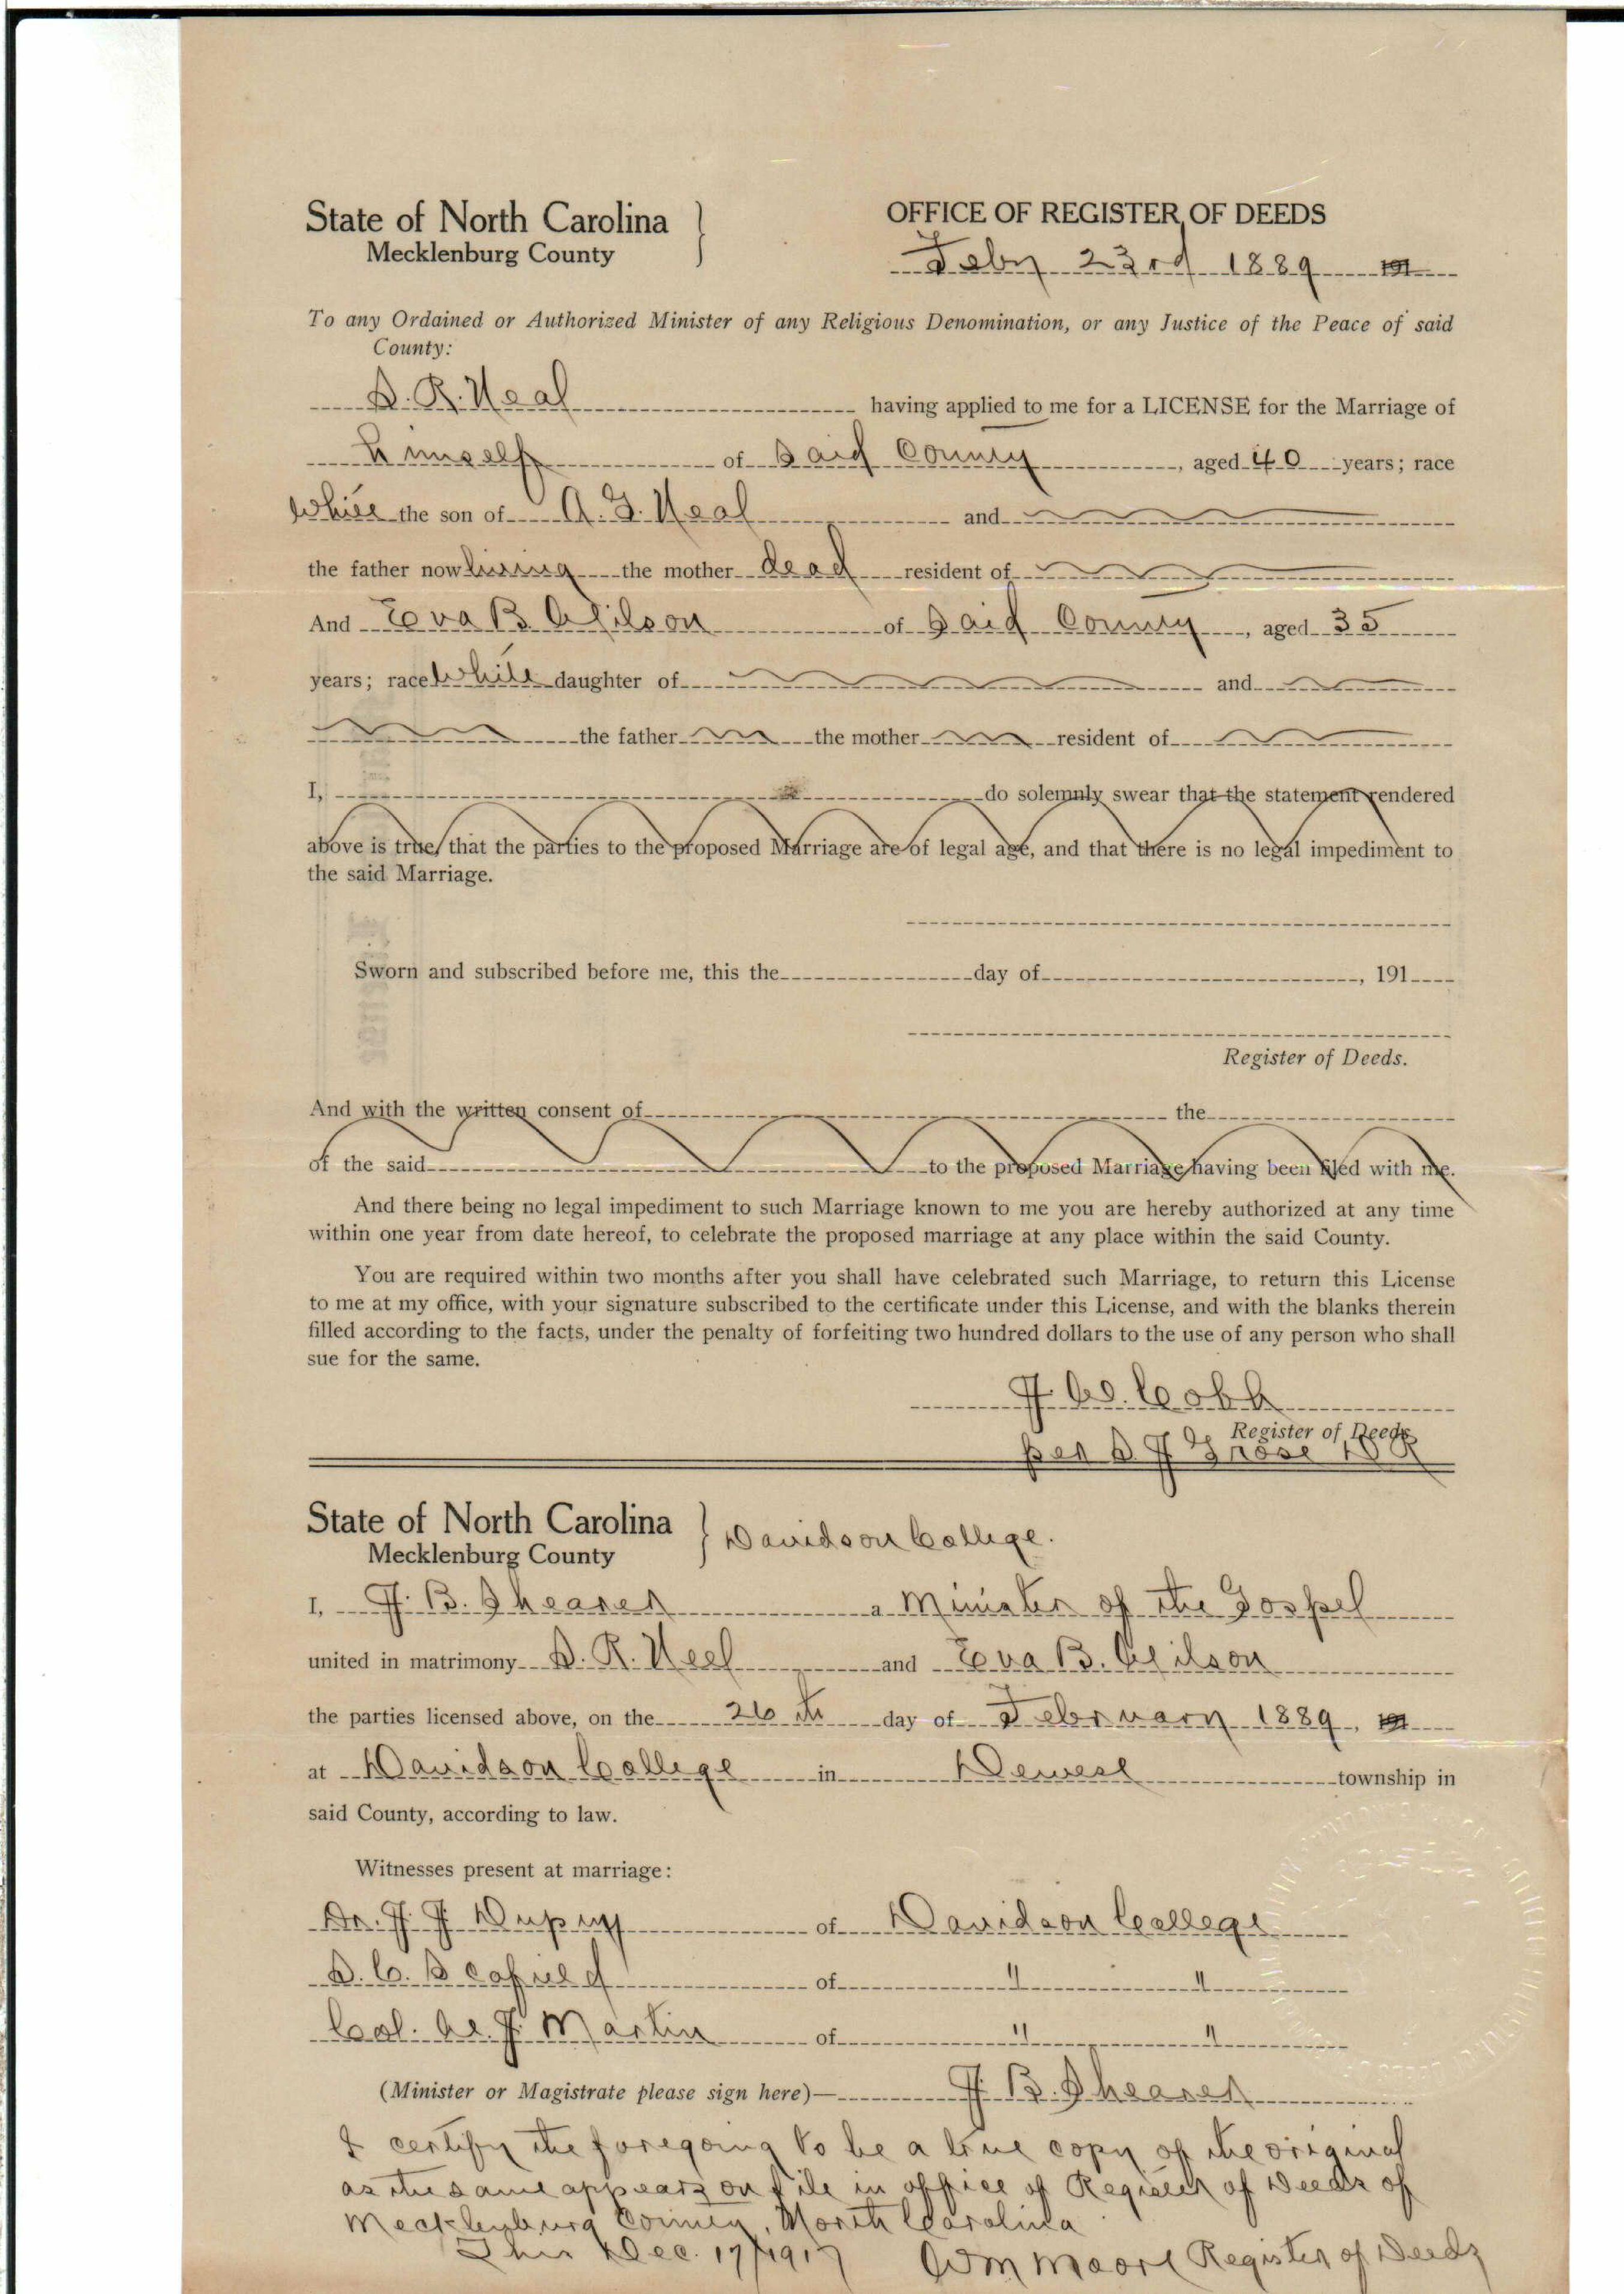 State of North Carolina } OFFICE OF REGISTER OF DEEDS
Mecklenburg County Feby 23rd 1889 191
To any Ordained or Authorized Minister of any Religious Denomination, or any Justice of the Peace of said
County:
S. R. Neal having applied to me for a LICENSE for the Marriage of
himself of said County, aged 40 years; race
white the son of A. G. Neal and
the father now living the mother dead resident of
And Eva B Wilson of said County, aged 35
years; race white daughter of and
the father the mother resident of
I, do solemnly swear that the statement rendered
above is true, that the parties to the proposed Marriage are of legal age, and that there is no legal impediment to
the said Marriage.
Sworn and subscribed before me, this the day of , 191
Register of Deeds.
And with the written consent of the
of the said to the proposed Marriage having been filed with me.
And there being no legal impediment to such Marriage known to me you are hereby authorized at any time
within one year from date hereof, to celebrate the proposed marriage at any place within the said County.
You are required within two months after you shall have celebrated such Marriage, to return this License
to me at my office, with your signature subscribed to the certificate under this License, and with the blanks therein
filled according to the facts, under the penalty of forfeiting two hundred dollars to the use of any person who shall
sue for the same.
J. W. Cobb
Register of Deeds
per S J Grose D R
State of North Carolina } Davidson College.
Mecklenburg County
I, J. B. Shearer a Minister of the Gospel
united in matrimony S. R. Neel and Eva B. Wilson
the parties licensed above, on the 26th day of February 1889, 191
at Davidson College in Dewese township in
said County, according to law.
Witnesses present at marriage:
Dr. J J Dupuy of Davidson College
S. C. Scofield of " "
Col. W. J. Martin of " "
(Minister or Magistrate please sign here)— J. B. Shearer
I certify the foregoing to be a true copy of the original
as the same appears on file in office of Register of Deeds of
Mecklenburg County, North Carolina
This Dec. 17/1917 Wm Moore Register of Deeds